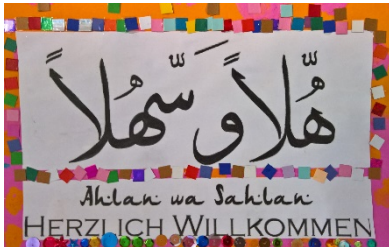 هُّلاً وَسّهُلاً
Ahlan wa Sahlan
HERZLICH WILLKOMMEN